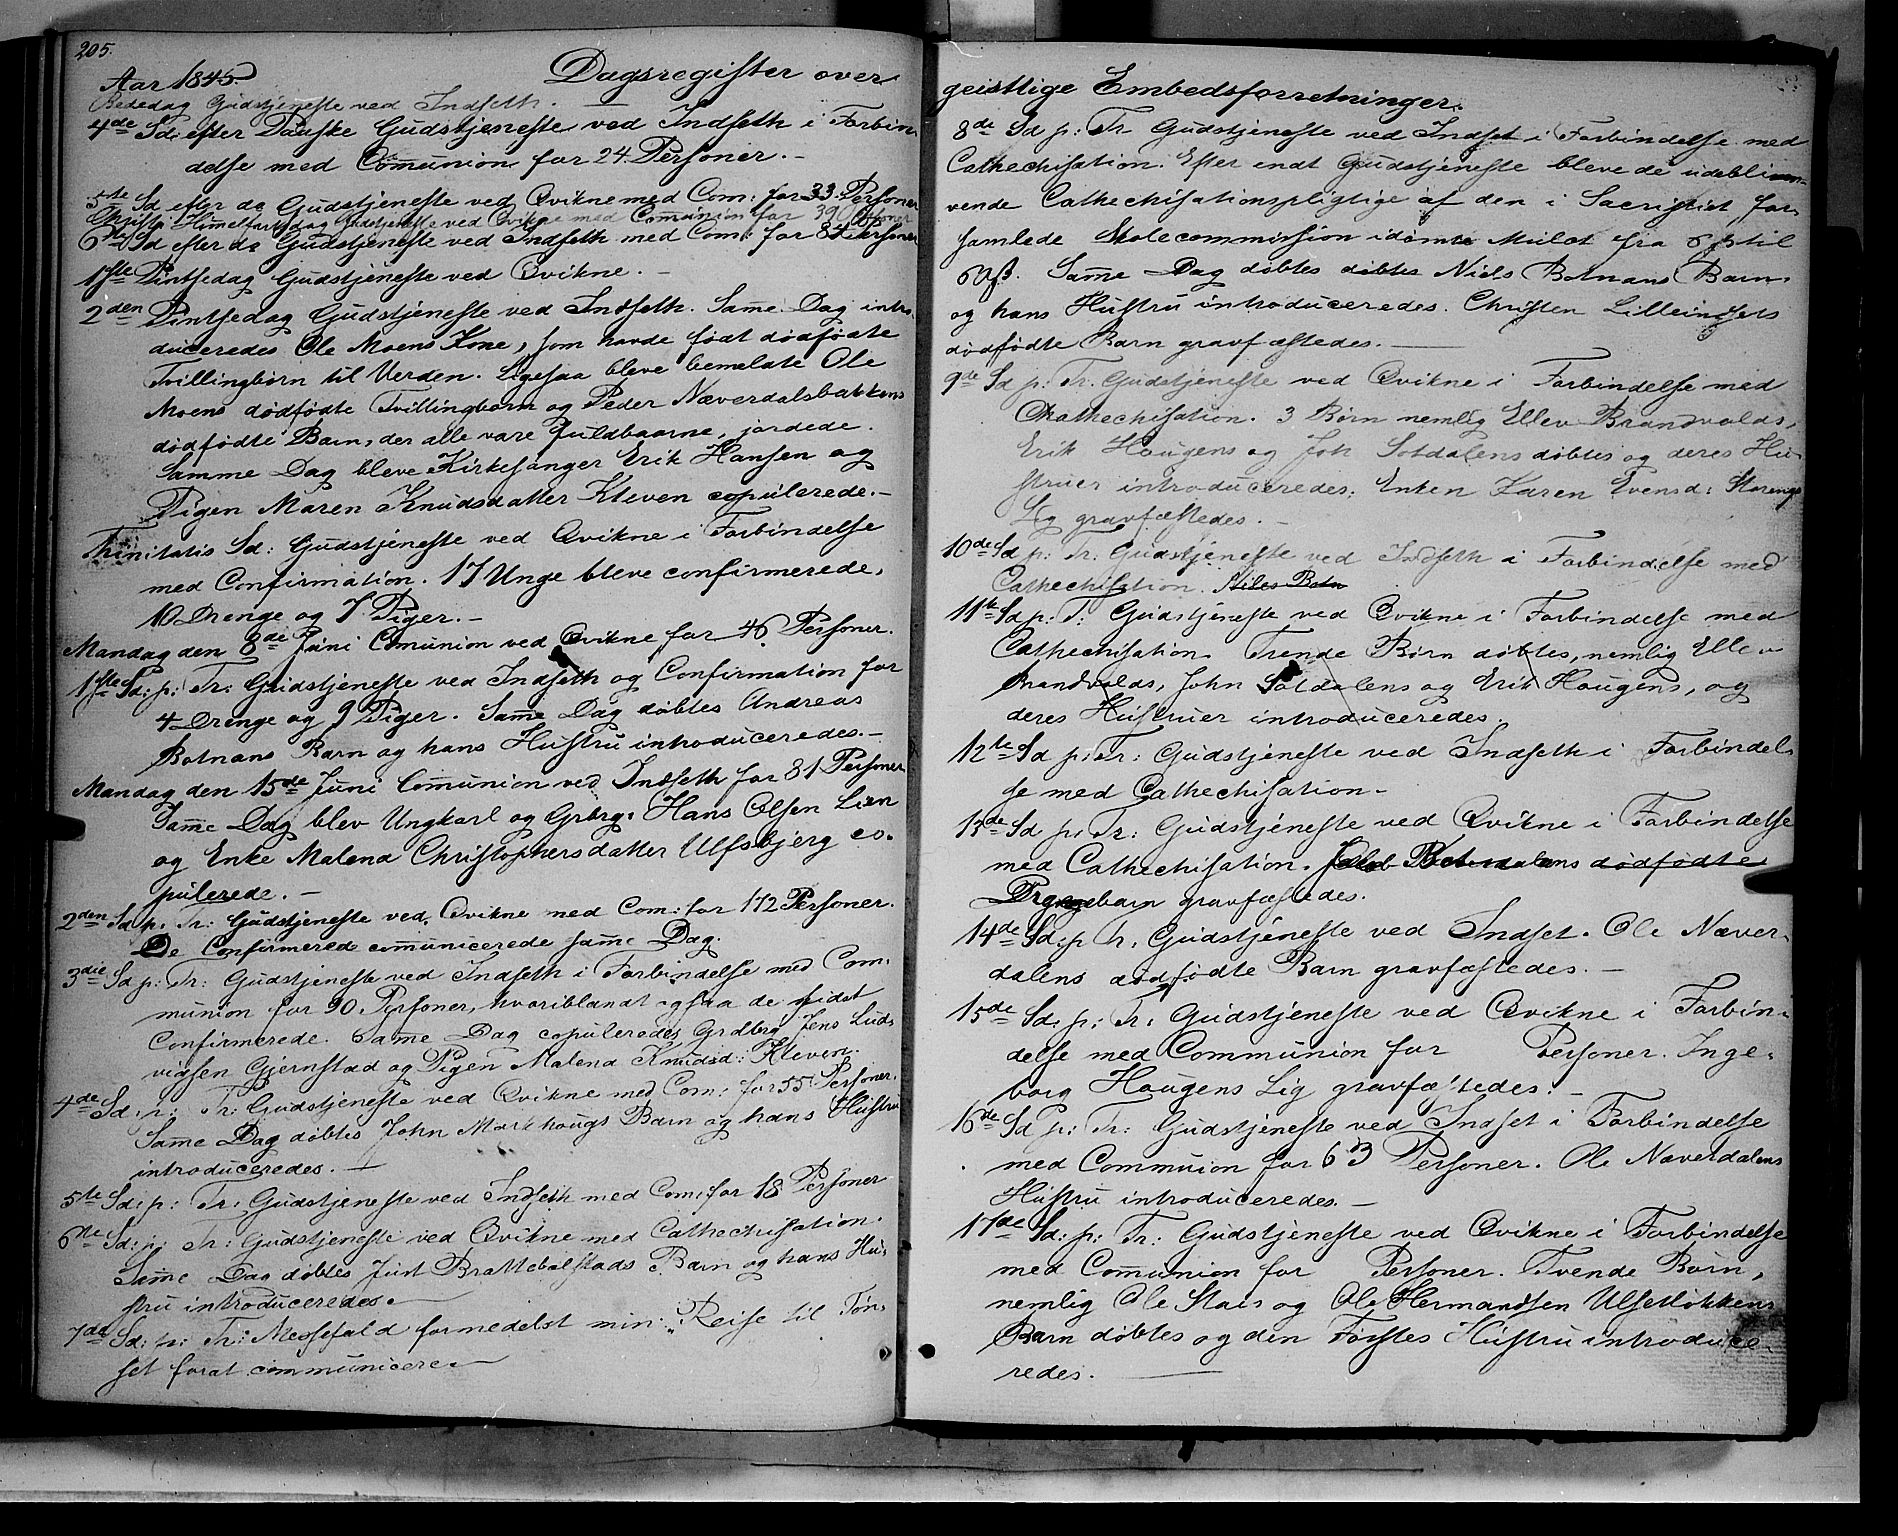 205.
Aar 1845
Dagsregister over
Bededag Gudstjeneste ved Indseth. —
4de Sd. efter Paaske Gudstjeneste ved Indseth i Forbin
delse med Comunion for 24 Personer. -
5te Sd efter do Gudstjeneste ved Qvikne med Com: for 33 Personer
Christi Himelfartsdag Gudstjeneste ved Qvikne med Comunion for 39 Personer
6te Sd efter do Gudstjeneste ved Indseth med Com: for 84 Personer
1ste Pintsedag Gudstjeneste ved Qvikne. -
2den Pintsedag Gudstjeneste ved Indseth. Same Dag intro
duceredes Ole Moens Kone, som havde født dødfødte
Tvillingbørn til Verden. Ligesaa bleve bemeldte Ole
Moens dødfødte Tvillingbørn og Peder Næverdalsbakkens
dødfødte Barn, der alle vare fuldbaarne, jordede.
Samme Dag bleve Kirkesanger Erik Hansen og
Pigen Maren Knudsdatter Kleven copulerede. -
Trinitatis Sd: Gudstjeneste ved Qvikne i Forbindelse
med Confirmation. 17 Unge bleve confirmerede,
10 Drenge og 7 Piger. -
Mandag den 8de Juni Comunion ved Qvikne for 46 Personer.
1ste Sd: p: Tr: Gudstjeneste ved Indseth og Confirmation for
4 Drenge og 9 Piger. Same Dag døbtes Andreas
Botnans Barn og hans Hustru introduceredes. -
Mandag den 15de Juni Comunion ved Indseth for 81 Personer
Same Dag blev Ungkarl og Grbrg: Hans Olsen Lien
og Enke Malena Christophersdatter Ulfsbjerg co-
pulerede. -
2den Sd p. Tr: Gudstjeneste ved Qvikne med Com: for 112 Personer.
De Confirmerede comunicerede same Dag.
3die Sd p: Tr: Gudstjeneste ved Indseth i Forbindelse med Com-
munion for 90 Personer, hvoriblandt ogsaa de sidst
Confirmerede. Same Dag copuleredes Grdbrg Jens Lud-
vigsen Gjernstad og Pigen Malena Knudsd: Kleven.
4de Sd. p: Tr: Gudstjeneste ved Qvikne med Com: for 55 Personer.
Same Dag døbtes John Morkhougs Barn og hans Hustru
introduceredes. —
5te Sd: p: Tr: Gudstjeneste ved Indseth med Com: for 18 Personer
6te Sd: p: Tr: Gudstjeneste ved Qvikne med Cathechisation.
Same Dag døbtes Just Brattebølstads Barn og hans Hu-
stru introduceredes.
7de Sd: p: Tr: Messefald formedelst min Reise til Tøn-
set forat communicere
geistlige Embedsforretninger.
8de Sd p: Tr Gudstjeneste ved Indset i Forbindelse med
Cathechisation. Efter endt Gudstjeneste bleve de udebli-
vende Cathechisationspligtige af den i Sacristiet for-
samlede Skolecommission idømte Mulct fra 6 ß til
Same Dag døbtes døbtes Niels Botnans Barn
og hans Hustru introduceredes. Christen Lilleindsets
dødfødte Barn gravfæstedes. —
9de Sd p: Tr. Gudstjeneste ved Qvikne i Forbindelse med
Chathechisation. 3 Børn nemlig Ellev Brandvolds,
Erik Hougens og Joh Sotdalens døbtes og deres Hu-
struer introduceredes. Enken Karen Evensd: Storeng
Lig gravfæstedes. -
10de Sd p: Tr: Gudstjeneste ved Indseth i Forbindelse med
Cathechisation. Niles Botn
11te Sd p: T: Gudstjeneste ved Qvikne i Forbindelse med
Cathechisation. Trende Børn døbtes, nemlig Ellev
Brandvolds, John Sotdalens og Erik Hougens, og
deres Hustruer introduceredes.
12te Sd p: Tr: Gudstjeneste ved Indseth i Forbindel-
se med Cathechisation. -
13de Sd p: Tr: Gudstjeneste ved Qvikne i Forbindelse
med Cathechisation. dødfødte
Drengebarn gravfæstedes.
14de Sd: p Tr. Gudstjeneste ved Indset. Ole Næver-
dalens dødfødte Barn gravfæstedes. -
15de Sd. p: Tr: Gudstjeneste ved Qvikne i Forbin-
delse med Communion for Personer. Inge-
borg Hougens Lig gravfæstedes. -
16de Sd p: Tr: Gudstjeneste ved Indset i Forbindelse
med Commuion for 63 Personer. Ole Næverdalens
Hustru introduceredes. -
17de Sd: p: Tr: Gudstjeneste ved Qvikne i Forbindelse
med Comunion for Personer. Tvende Børn,
nemlig Ole Stais og Ole Hermandsen Ulsetløkkens
Barn døbtes og den Førstes Hustru introduce-
redes. —